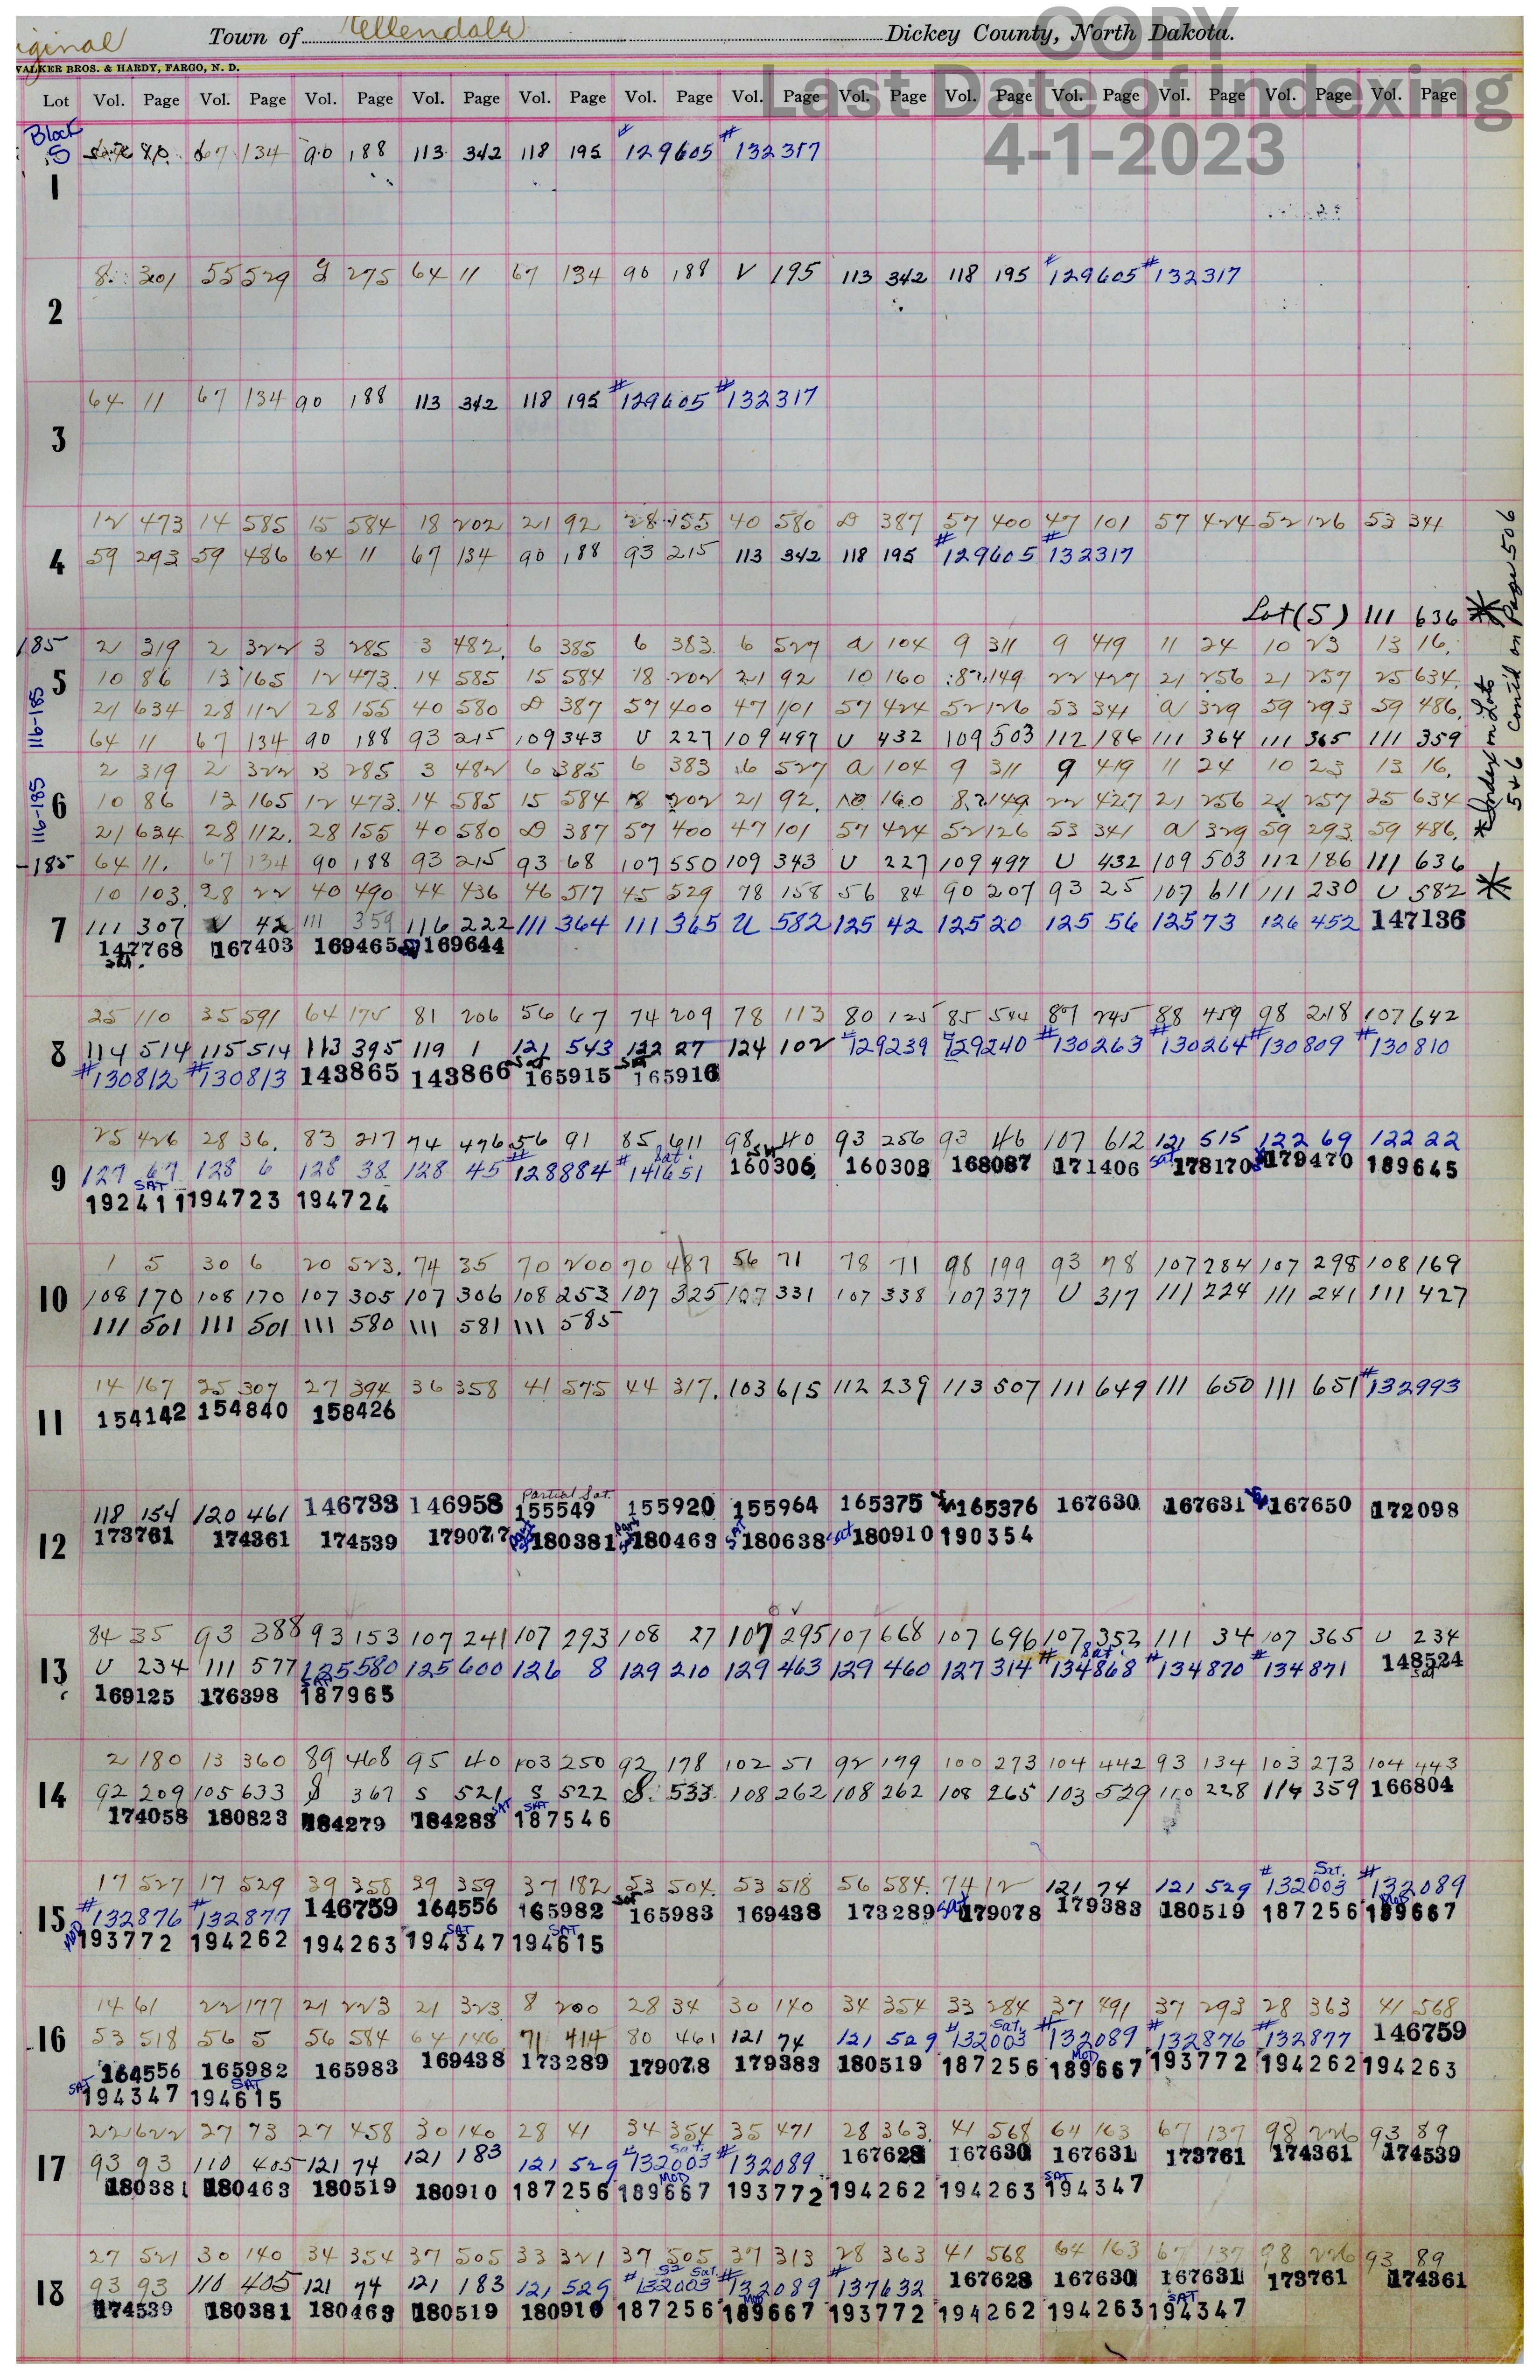 iginal Town of Ellendale Dickey County, North Dakota.
COPY
VALKER BROS. & HARDY, FARGO, N. D.
Last Date of Indexing
4-1-2023
Lot Vol. Page Vol. Page Vol. Page Vol. Page Vol. Page Vol. Page Vol. Page Vol. Page Vol. Page Vol. Page Vol. Page Vol. Page Vol. Page
Block
5 67 134 90 188 113 342 118 195 #129605 #132317
1
8 301 55 529 G 275 64 11 67 134 90 188 V 195 113 342 118 195 #129605 #132317
2
64 11 67 134 90 188 113 342 118 195 #129605 #132317
3
12 473 14 585 15 584 18 202 21 92 28 155 40 580 D 387 57 400 47 101 57 424 52 126 53 341
4 59 293 59 486 64 11 67 134 90 188 93 215 113 342 118 195 #129605 #132317
Lot (5) 111 636 *
185 2 319 2 322 3 285 3 482 6 385 6 383 6 527 a 104 9 311 9 419 11 24 10 23 13 16
5 10 86 13 165 12 473 14 585 15 584 18 202 21 92 10 160 8 149 22 427 21 256 21 257 25 634
21 634 28 112 28 155 40 580 D 387 57 400 47 101 57 424 52 126 53 341 a 329 59 293 59 486
64 11 67 134 90 188 93 215 109 343 U 227 109 497 U 432 109 503 112 186 111 364 111 365 111 359
116-185
2 319 2 322 3 285 3 482 6 385 6 383 6 527 a 104 9 311 9 419 11 24 10 23 13 16
6 10 86 13 165 12 473 14 585 15 584 18 202 21 92 10 160 8 149 22 427 21 256 21 257 25 634
21 634 28 112 28 155 40 580 D 387 57 400 47 101 57 424 52 126 53 341 a 329 59 293 59 486
-185 64 11 67 134 90 188 93 215 93 68 107 550 109 343 U 227 109 497 U 432 109 503 112 186 111 636 *
116-185
* Index on Lots
5 & 6 Cont'd on Page 506
10 103 28 22 40 490 44 436 46 517 45 529 78 158 56 84 90 207 93 25 107 611 111 230 U 582
7 111 307 V 42 111 359 116 222 111 364 111 365 U 582 125 42 125 20 125 56 125 73 126 452 147136
147768 Sat. 167403 169465 169644
25 110 35 591 64 175 81 206 56 67 74 209 78 113 80 125 85 544 87 245 88 459 98 218 107 642
8 114 514 115 514 113 395 119 1 121 543 122 27 124 102 #129239 #129240 #130263 #130264 #130809 #130810
#130812 #130813 143865 143866 Sat 165915 Sat 165916
25 426 28 36 83 217 74 476 56 91 85 611 98 40 93 256 93 46 107 612 121 515 122 69 122 22
9 127 67 128 6 128 38 128 45 #128884 #141651 Sat. 160306 160308 168087 171406 Sat 178170 179470 189645
192411 SAT 194723 194724
1 5 30 6 20 523 74 35 70 200 70 487 56 71 78 71 98 199 93 78 107 284 107 298 108 169
10 108 170 108 170 107 305 107 306 108 253 107 325 107 331 107 338 107 377 U 317 111 224 111 241 111 427
111 501 111 501 111 580 111 581 111 585
14 167 25 307 27 394 36 358 41 575 44 317 103 615 112 239 113 507 111 649 111 650 111 651 #132993
11 154142 154840 158426
118 154 120 461 146733 146958 Partial Sat. 155549 155920 155964 165375 165376 167630 167631 167650 172098
12 173761 174361 174539 179077 Part Sat 180381 Part Sat 180463 SAT 180638 Sat 180910 190354
84 35 93 388 93 153 107 241 107 293 108 27 107 295 107 668 107 696 107 352 111 34 107 365 U 234
13 U 234 111 577 125 580 125 600 126 8 129 210 129 463 129 460 127 314 #134868 Sat. #134870 #134871 148524 Sat
169125 176398 SAT 187965
2 180 13 360 89 468 95 40 103 250 92 178 102 51 92 179 100 273 104 442 93 134 103 273 104 443
14 92 209 105 633 S 367 S 521 S 522 S. 533 108 262 108 262 108 265 103 529 110 228 114 359 166804
174058 180823 184279 184283 SAT SAT 187546
17 527 17 529 39 358 39 359 37 182 53 504 53 518 56 584 74 12 121 74 121 529 #132003 Sat. #132089
15 #132876 #132877 146759 164556 165982 Sat 165983 169438 173289 Sat 179078 179383 180519 187256 MOD 189667
MOD 193772 194262 194263 194347 SAT 194615 SAT
14 61 22 177 21 223 21 323 8 200 28 34 30 140 34 354 33 284 37 491 37 293 28 363 41 568
16 53 518 56 5 56 584 64 146 71 414 80 461 121 74 121 529 #132003 Sat. #132089 #132876 #132877 146759
164556 165982 165983 169438 173289 179078 179383 180519 187256 MOD 189667 193772 194262 194263
SAT 194347 SAT 194615
22 622 27 73 27 458 30 140 28 41 34 354 35 471 28 363 41 568 64 163 67 137 98 226 93 89
17 93 93 110 405 121 74 121 183 121 529 #132003 Sat. #132089 167628 167630 167631 173761 174361 174539
180381 180463 180519 180910 187256 MOD 189667 193772 194262 194263 SAT 194347
27 521 30 140 34 354 37 505 33 321 37 505 37 313 28 363 41 568 64 163 67 137 98 226 93 89
18 93 93 110 405 121 74 121 183 121 529 #132003 Sat. #132089 #137632 167628 167630 167631 173761 174361
174539 180381 180463 180519 180910 187256 MOD 189667 193772 194262 194263 SAT 194347